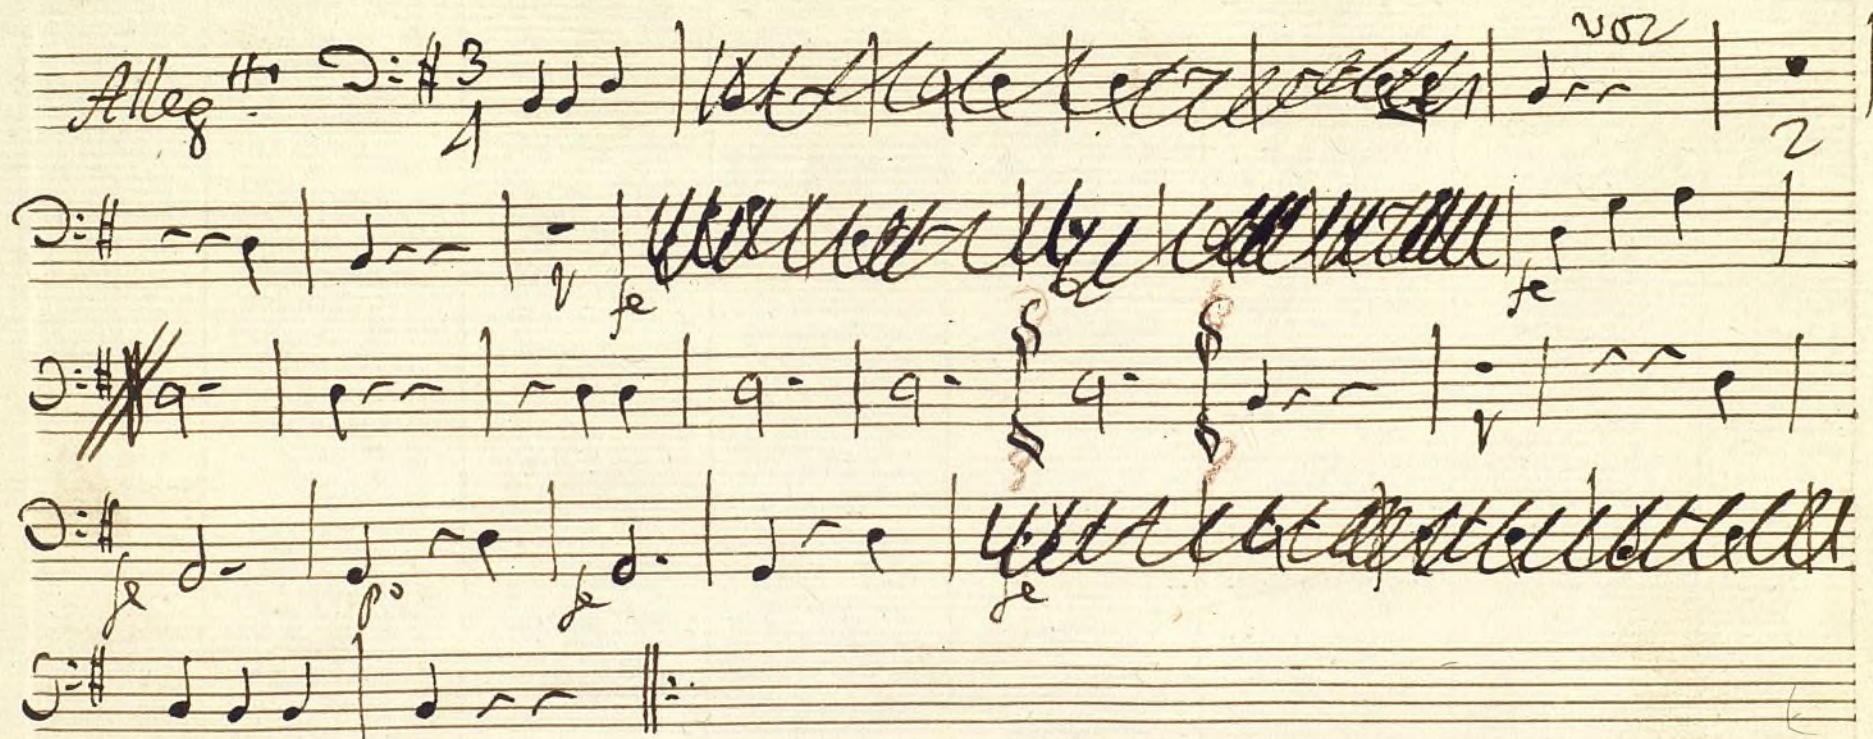 Allegtto 3 voz
4 2
fe fe
fe po fe fe